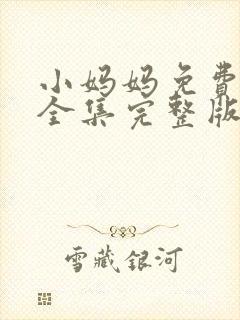 小妈妈免费
全集完整版
雪藏银河